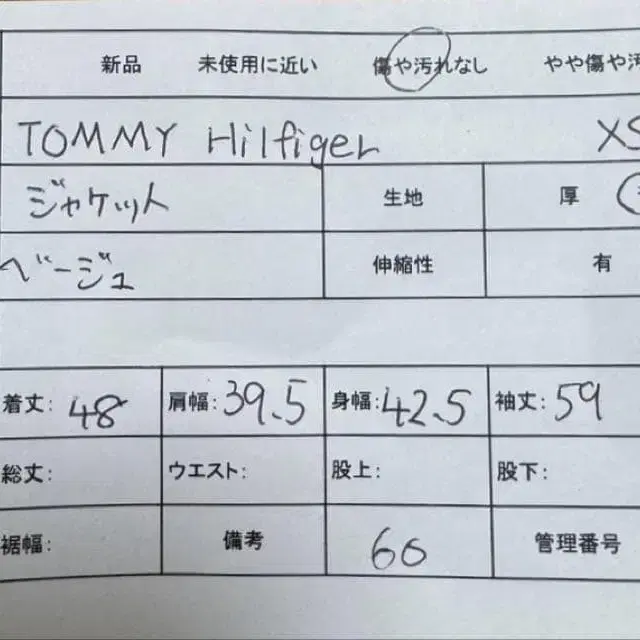 新品 未使用に近い 傷や汚れなし やや傷や汚
TOMMY Hilfiger XS
ジャケット 生地 厚
ベージュ 伸縮性 有
着丈: 48 肩幅: 39.5 身幅: 42.5 袖丈: 59
総丈: ウエスト: 股上: 股下:
裾幅: 備考 60 管理番号